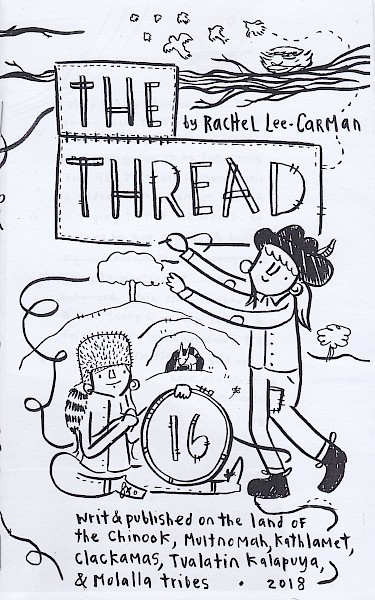 THE
by RACHEL LEE-CARMAN
THREAD
16
writ & published on the land of
the Chinook, Multnomah, Kathlamet,
Clackamas, Tualatin Kalapuya,
& Molalla tribes • 2018